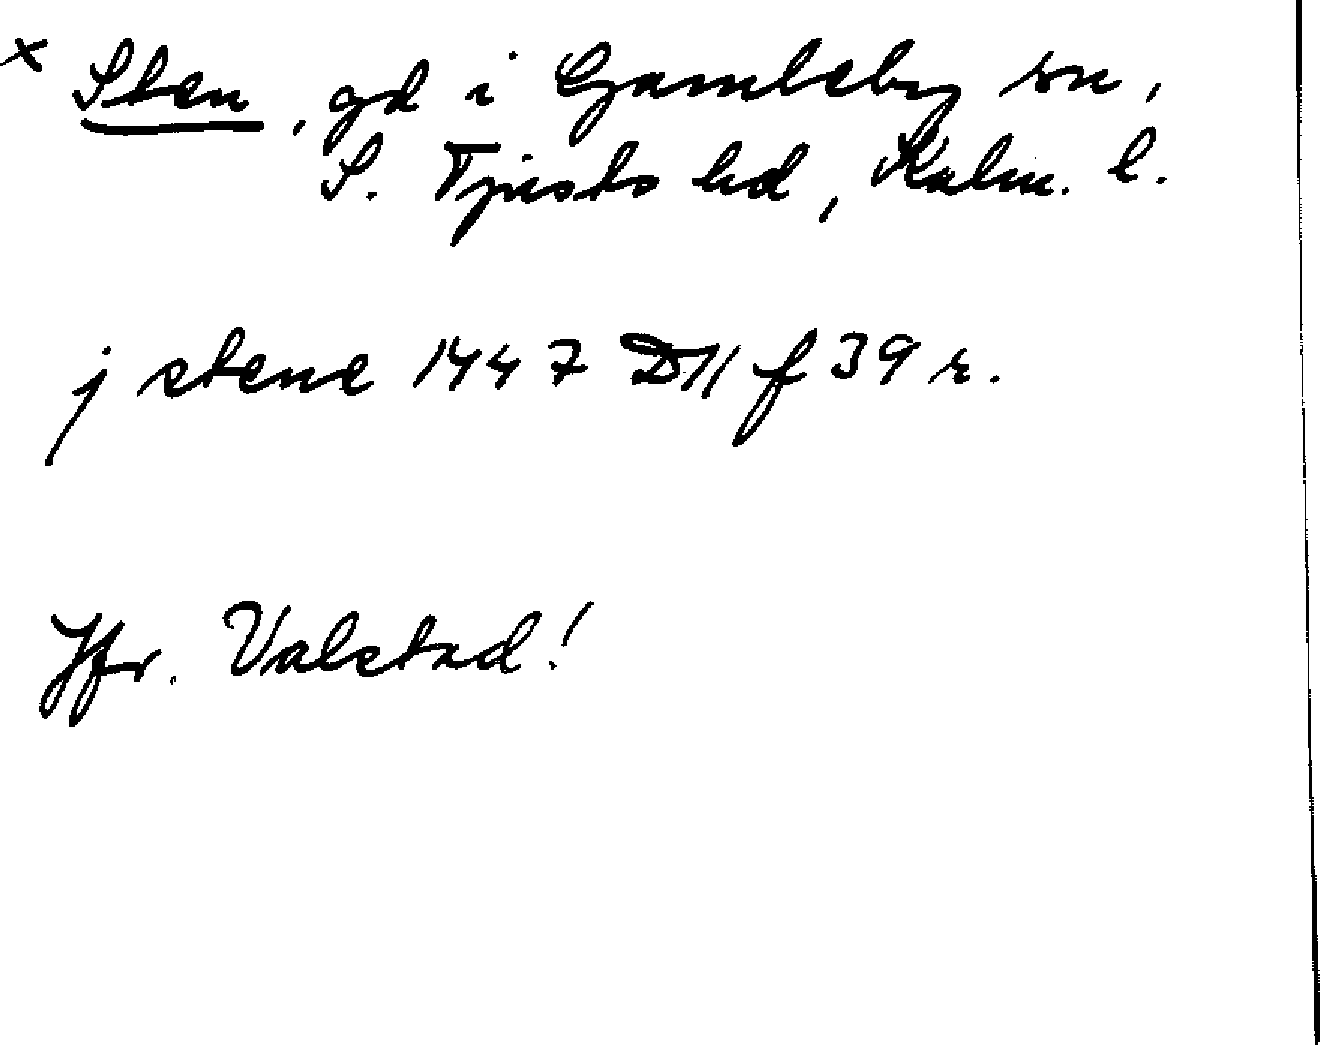 x Sten, gd i Gamleby sn,
S. Tjusts hd, Kalm. l.
j stene 1447 D11 f 39 r.
Jfr. Valstad!